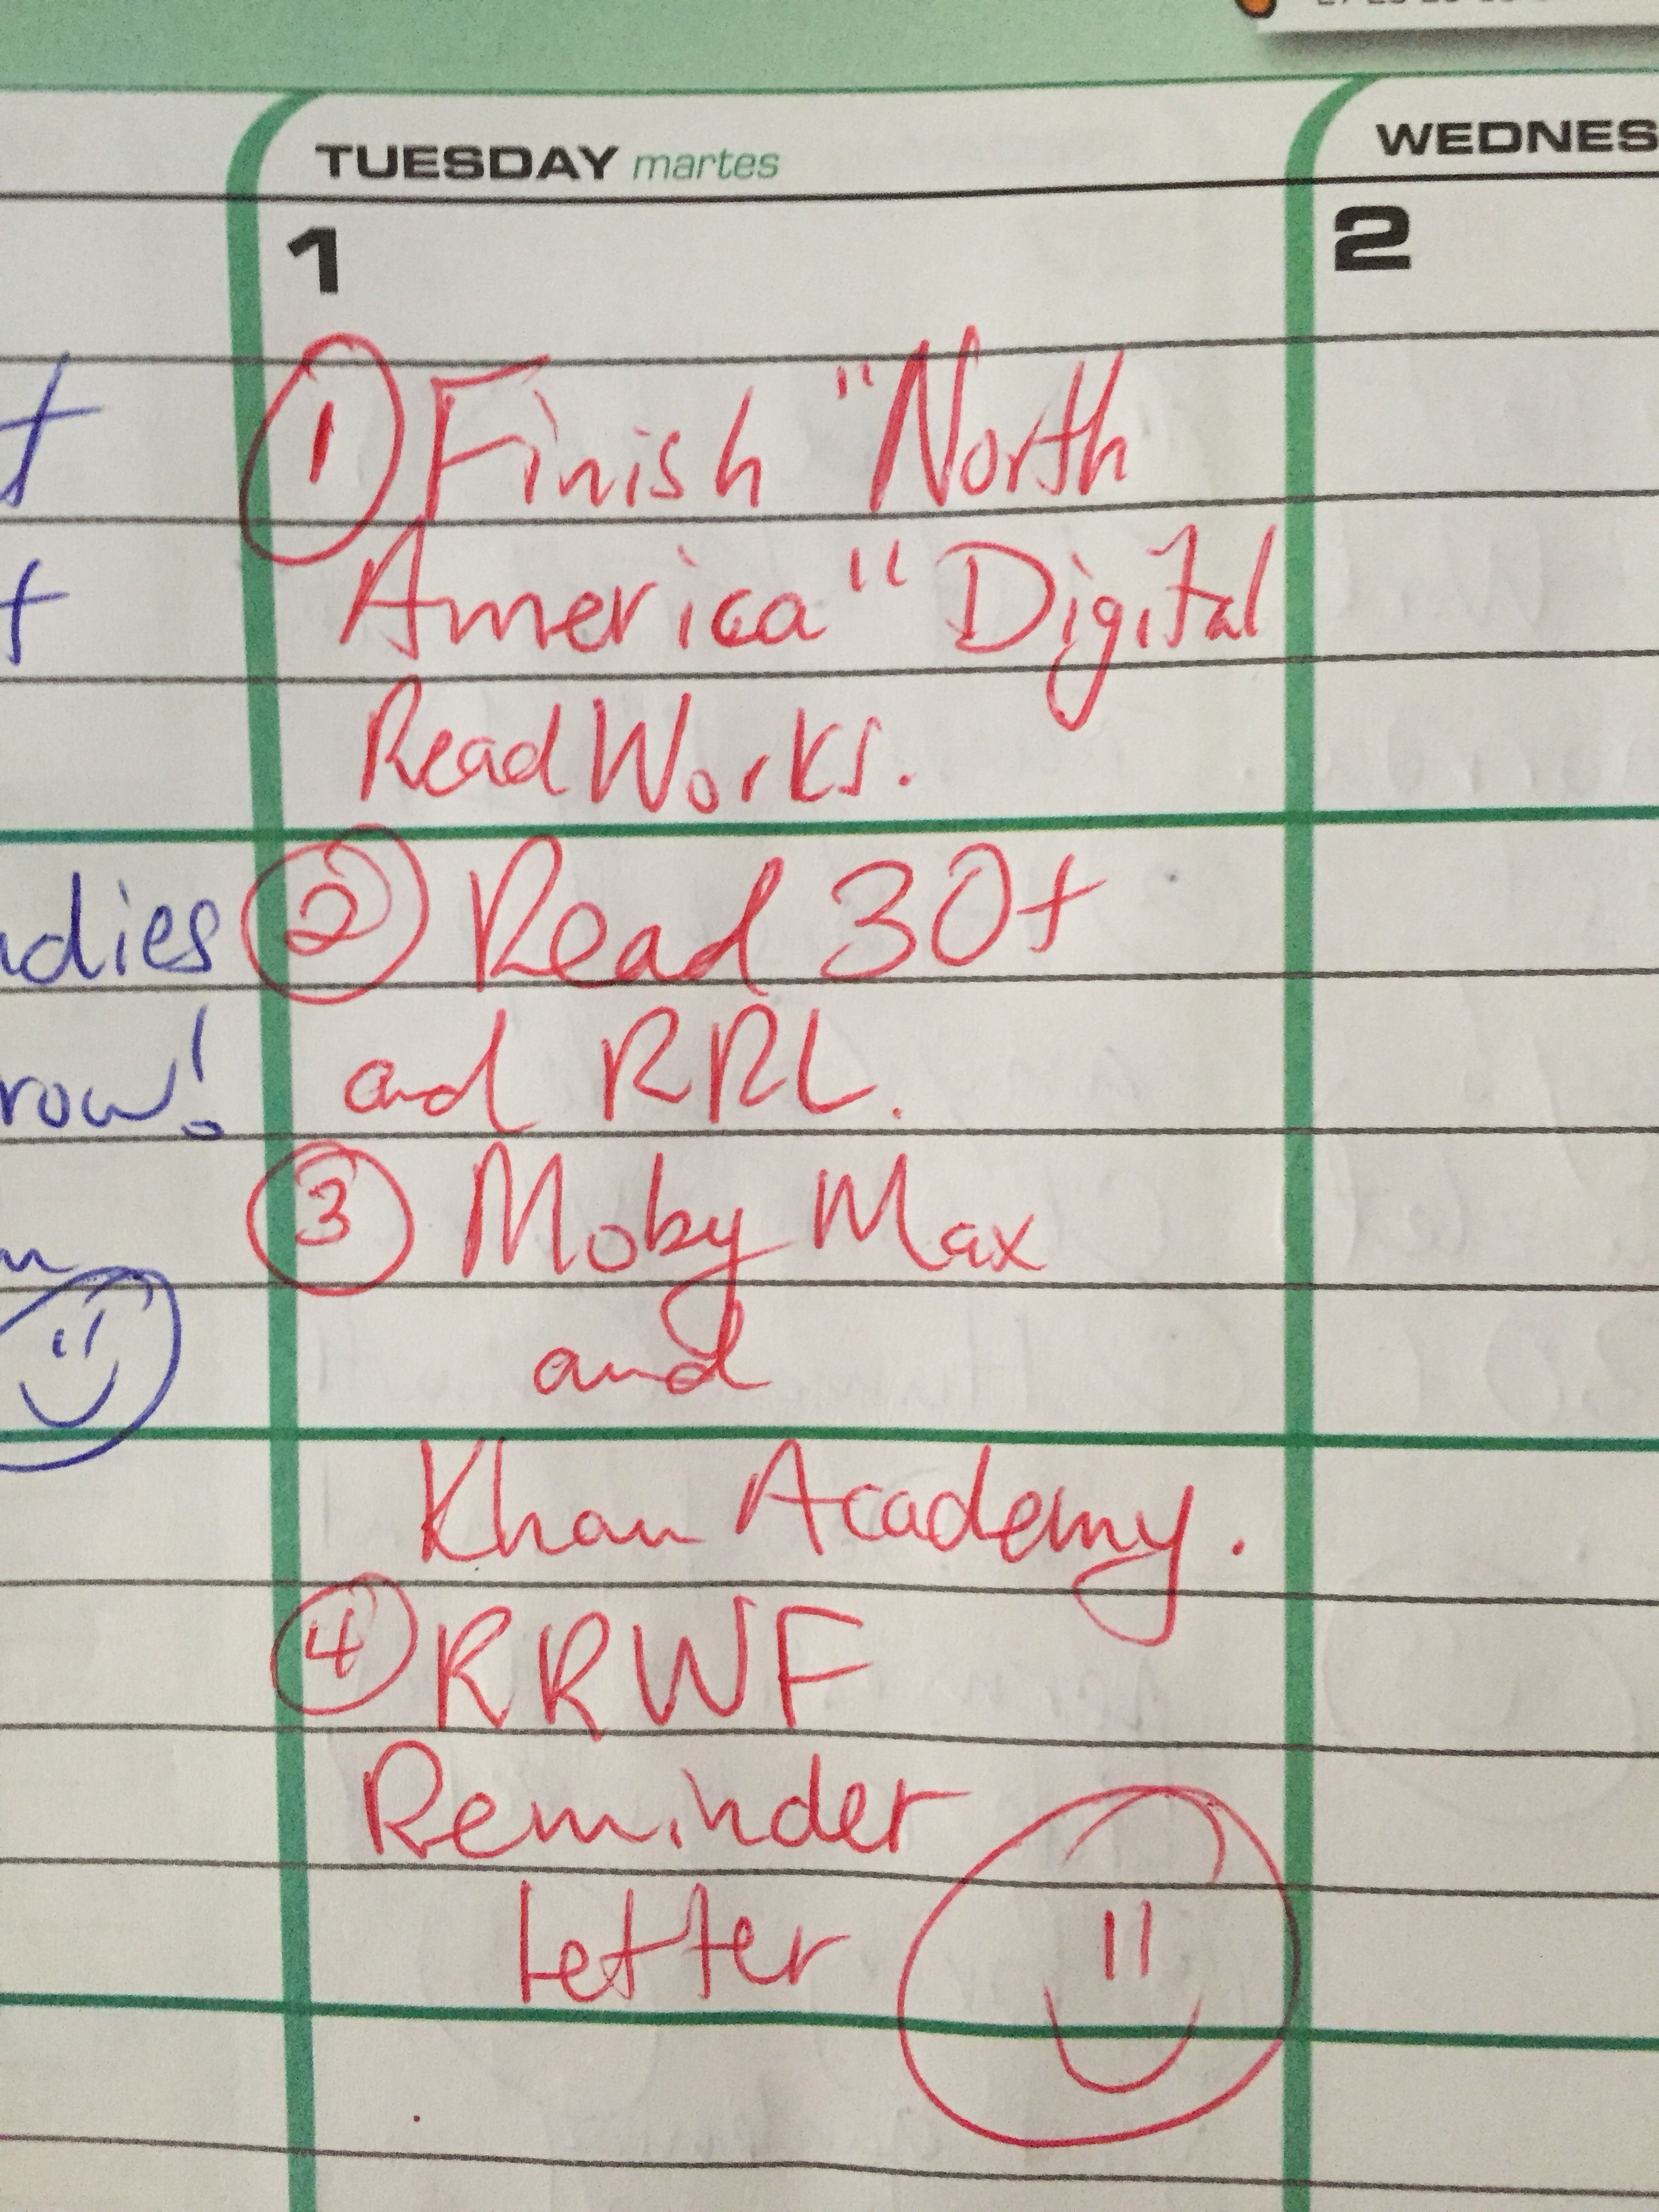 TUESDAY martes
WEDNES
1
2
① Finish "North
America" Digital
ReadWorks.
② Read 30+
and RRL.
③ Moby Max
and
Khan Academy.
④ RRWF
Reminder
Letter
t
t
dies
row!